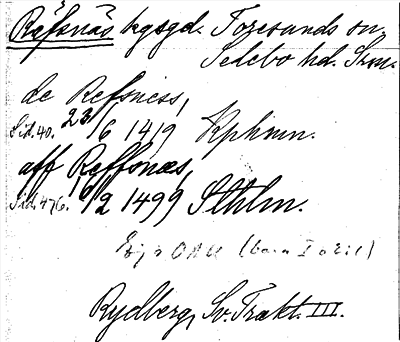 Räfsnäs kgsgd. Toresunds sn,
Selebo hd. Södm.
de Refsness,
Sid. 40. 23/6 1419 Kphamn.
aff Reffonæs,
Sid. 476. 6/2 1499 Sthlm.
Ej i OAU (bara I o III)
Rydberg, Sv. Trakt. III.